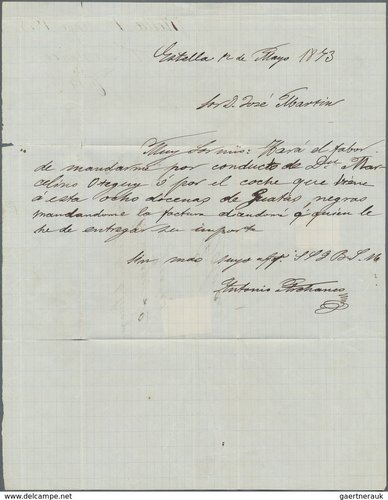 Estella 12 de Mayo 1873
Sor D. José Martin
Muy Sor mio: Hará el fabor
de mandarme por conducto de Dn Mar-
celino Oteguy ó por el coche que viene
á esta ocho docenas de Guatas negras
mandandome la factura diciendome á quien le
he de entregar su importe
Sin mas suyo affmo S S Q B S M
Antonio
gaertnerauk
www.delcampe.net